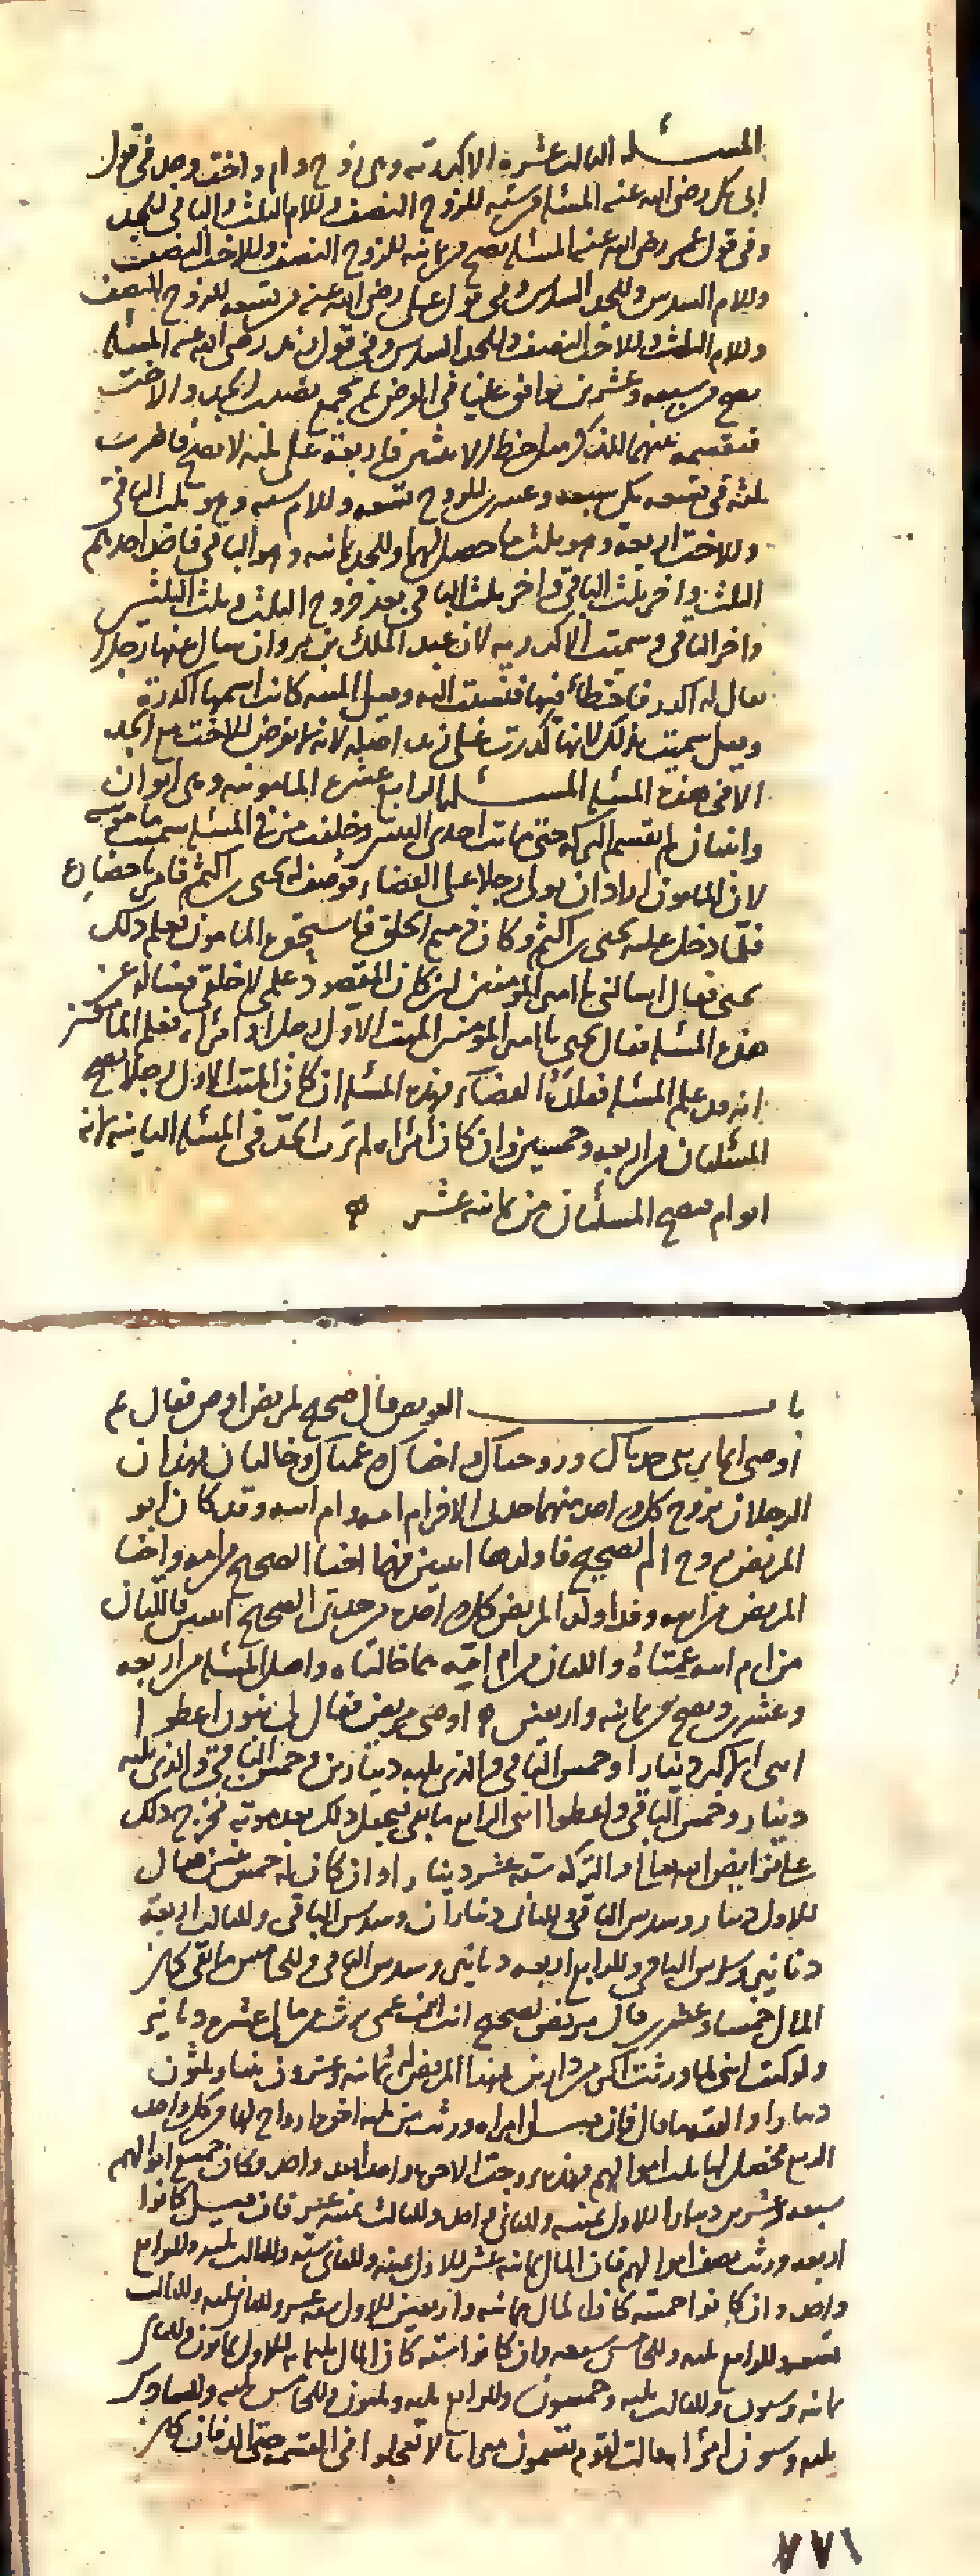 المسئله الثالث عشره الاكدريه وهي زوج وام واخت وجد في قول
ابي بكر رضي الله عنه المسئله من سته للزوج النصف وللام الثلث والباقي للجد
وفي قول عمر رضي الله عنه المسئله تصح من ثمانيه للزوج النصف وللاخت النصف
وللام السدس وللجد السدس وفي قول علي رضي الله عنه من تسعه للزوج النصف
وللام الثلث وللاخت النصف وللجد السدس وفي قول زيد رضي الله عنه المسئله
تصح من سبعه وعشرين يوافق عليا في الفرض ثم يجمع نصيب الجد والاخت
فتقسمه بينهما للذكر مثل حظ الانثيين فاربعة على ثلثه لا يصح فاضرب
ثلثه في تسعه تكن سبعه وعشرين للزوج تسعه وللام سته وهو ثلث الباقي
وللاخت اربعة وهو ثلث ما حصل لهما وللجد ثمانيه وهو الباقي فاخذ احدهم
الثلث واخر ثلث الباقي واخر ثلث الباقي بعد خروج الثلث وثلث الثلثين
واخر الباقي وسميت الاكدريه لان عبد الملك بن مروان سال عنها رجلا
يقال له اكدر فاخطأ فيها فنسبت اليه وقيل الميته كان اسمها اكدرة
وقيل سميت بذلك لانها كدرت على زيد اصله لانه لا يفرض للاخت مع الجد
الا في هذه المسئله المسئله الرابع عشر المامونيه وهي ابوان
وابنتان لم تقسم التركه حتى ماتت احدى البنتين وخلفت من في المسئله سميت مامونيه
لان المامون اراد ان يولي رجلا على القضاء فوصف له يحيى بن اكثم فامر باحضاره
فلما دخل عليه يحيى بن اكثم وكان دميم الخلق فاستحقره المامون فعلم ذلك
يحيى فقال اسالني يا امير المومنين ان كان المقصود علمي لا خلقي فساله عن
هذه المسئله فقال يحيى يا امير المومنين الميت الاول رجل او امراه فعلم المامون
انه قد علم المسئله فقلده القضاء وهذه المسئله ان كان الميت الاول رجلا تصح
المسئلتان من اربعه وخمسين وان كان امراه لم ترث الجد في المسئله الثانيه لانه
ابو ام فتصح المسئلتان من ثمانيه عشر
باب العويص قال صحيح لمريض اوص فقال بم
اوصي انما يرثني جدتاك وزوجتاك واختاك وعمتاك وخالتاك فهذان
الرجلان تزوج كل واحد منهما جدتي الاخر ام امه وام ابيه وقد كان ابو
المريض تزوج ام الصحيح فاولدها ابنتين فهما اختا الصحيح من امه واختا
المريض من ابيه وقد اولد المريض كل واحدة من جدتي الصحيح ابنتين فاللتان
من ام ابيه عمتاه واللتان من ام امه هما خالتاه واصل المسئله من اربعه
وعشرين وتصح من ثمانيه واربعين اوصى مريض فقال لي بنون اعطوا
ابني الاكبر دينارا وخمس الباقي والذي يليه دينارين وخمس الباقي والذي يليه
دينار وخمس الباقي واعطوا ابني الرابع ما بقي فيعمل ذلك بعد موته فخرج ذلك
على فرايض الله تعالى والتركه سته عشر دينارا وان كان له خمس بنين فقال
للاول دينار وسدس الباقي وللثاني ديناران وسدس الباقي وللثالث اربعة
دنانير وسدس الباقي وللرابع اربعه دنانير وسدس الباقي وللخامس ما بقي كان
المال خمسا وعشرين قال مريض لصحيح انت ابن عمي ترث من مالي عشره دنانير
ولو كنت ابني لما ورثت اكثر من دينارين فهذا المريض له ثمانيه وعشرون بنتا وثلثون
دينارا
الربع فحصل لها ثلث اموالهم فهذه تزوجت الاخوه واحدا بعد واحد وكان جميع اموالهم
سبعه وعشرين دينارا للاول
اربعه ورثت نصف اموالهم فان المال ثمانيه عشر للاول ثمنيه وللثاني سته وللثالث ثلثه وللرابع
واحد وان كانوا خمسه كان المال ثمانيه واربعين
وللرابع ثلثه وللخامس سبعه وان كانوا سته كان المال
امرأة قالت لقوم يقتسمون ميراثا لا تعجلوا في القسمه حتى الد فان كان
٧٧١